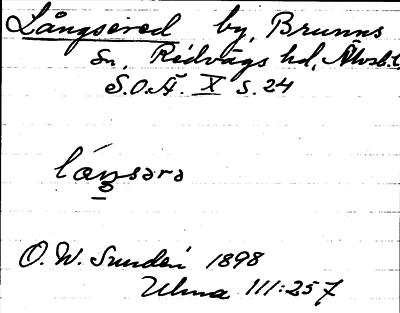 Långsered by, Brunns
sn, Redvägs hd, Älvsb. l.
S.O.Ä. X s. 24
låŋsərə
O. W. Sundén 1898
Ulma 111:257